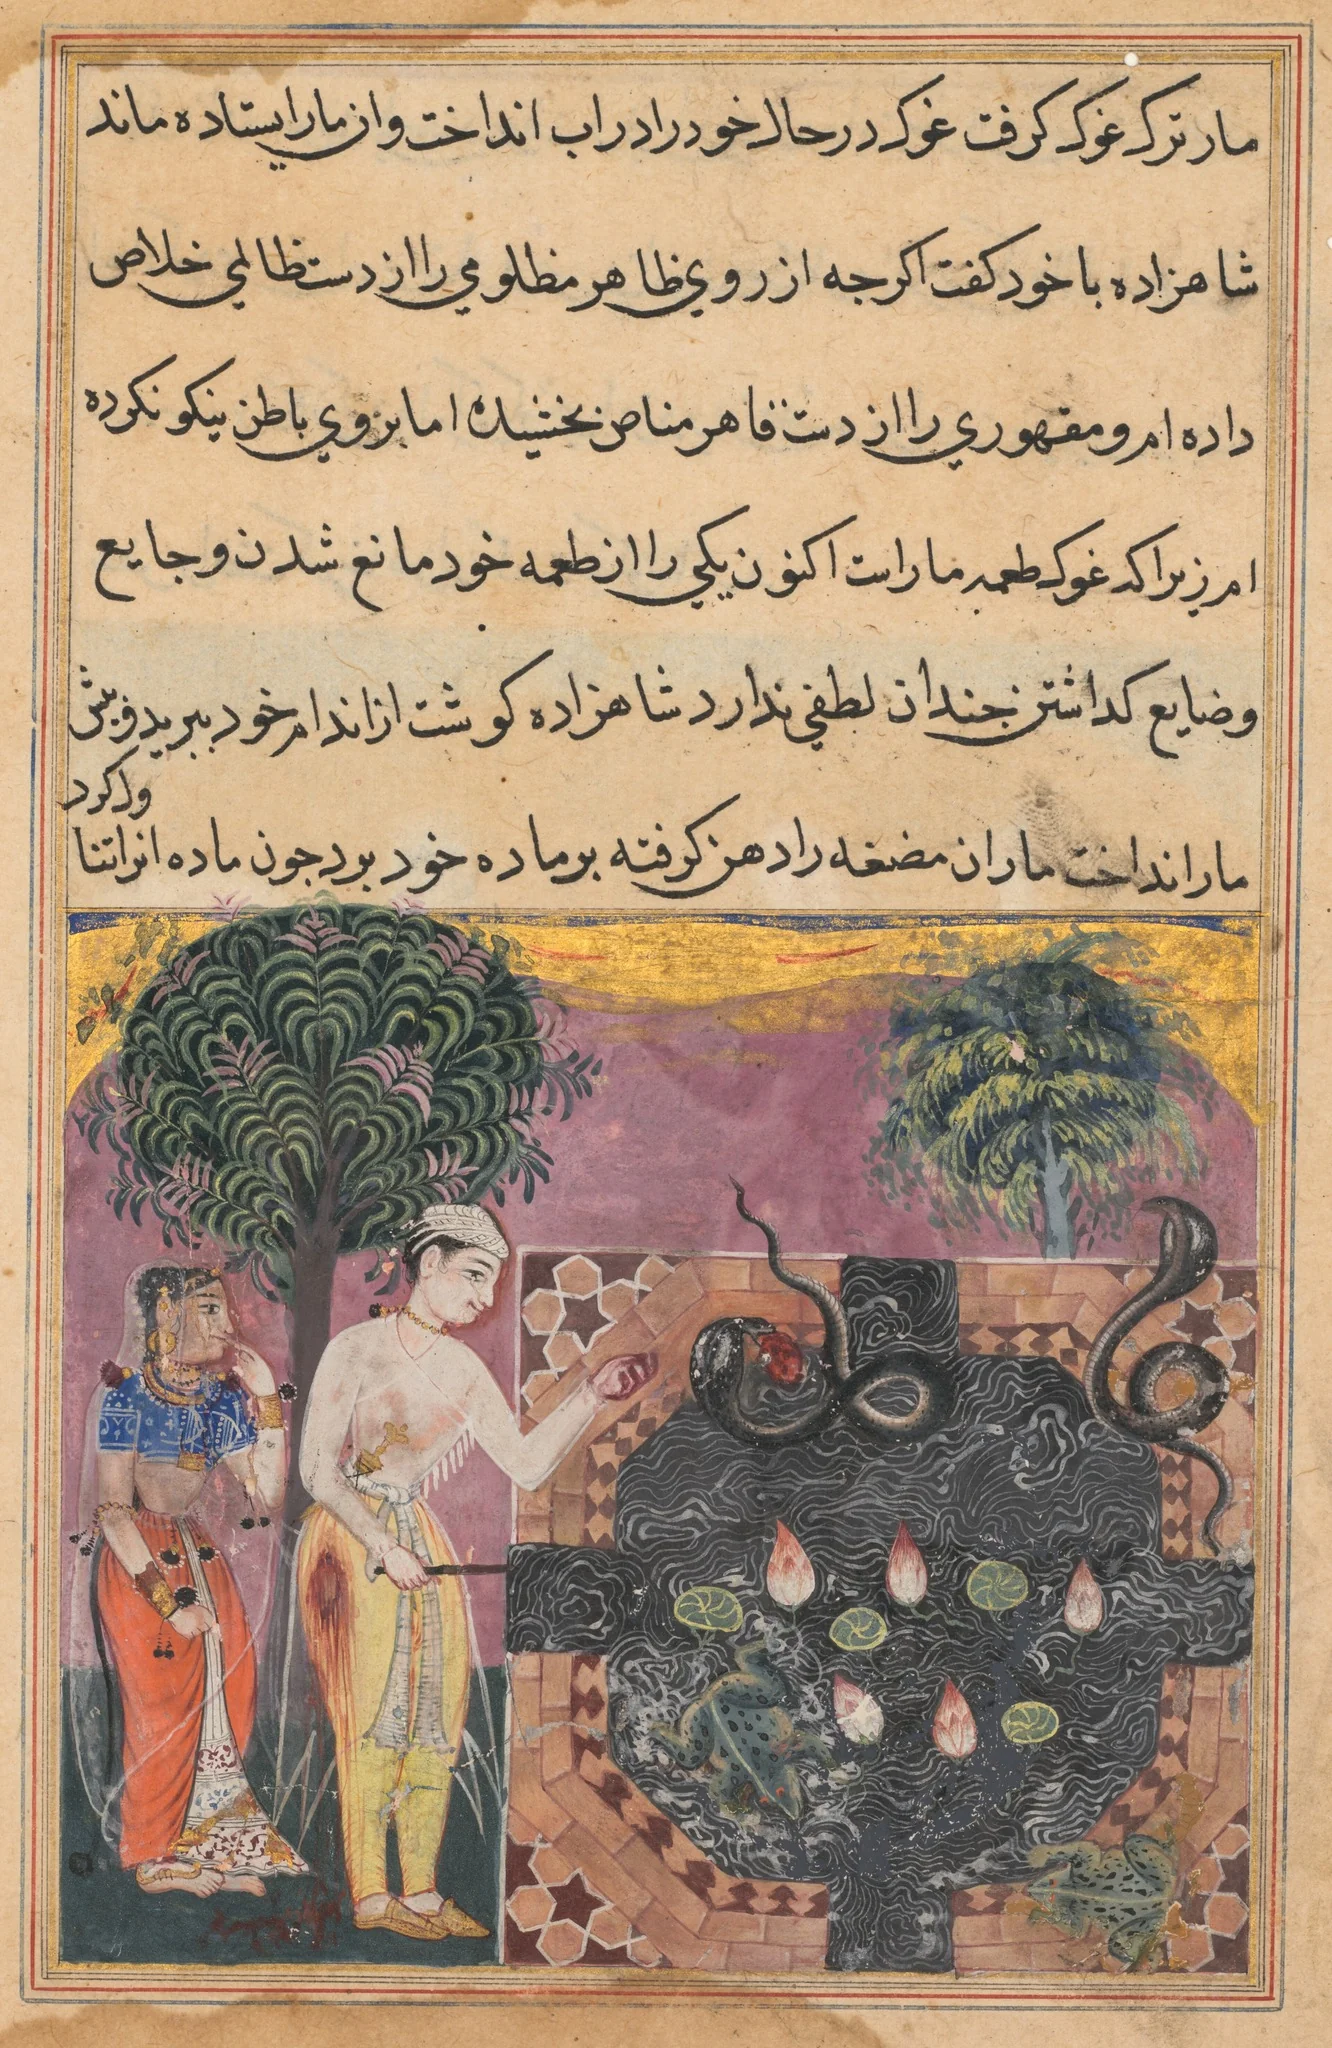 مار ترک غوک کرفت غوک در حال خود را در اب انداخت و ان مار ایستاده ماند
شاهزاده با خود کفت اکرجه از روی ظاهر مظلومی را از دست ظالمی خلاص
داده ام و مقهوری را از دست قاهر مناص بخشیده اما بروی باطن نیکو نکرده
ام زیراکه غوک طعمه مار است اکنون یکی را از طعمه خود مانع شدن و جایع
و ضایع کداشتن جندان لطفی ندارد شاهزاده کوشت از اندام خود ببرید و پیش
مار انداخت مار ان مضغه را دهن کرفته بر ماده خود برد جون ماده انرا تنا
ول کرد